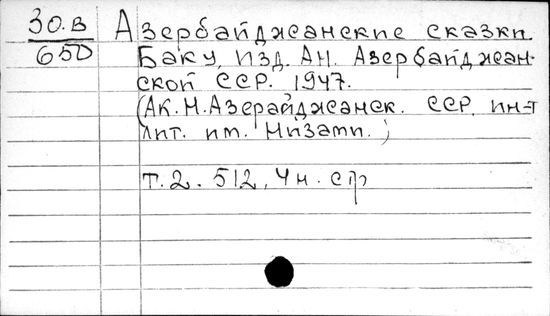 30.В
650
Азербайджанские сказки
Баку, Изд. Ан. Азербайджан-
ской ССР. 1947.
(Ак.Н.Азерайджанск. ССР, ин-т
лит. им. Низами.)
т.2. 512, 4 н. стр